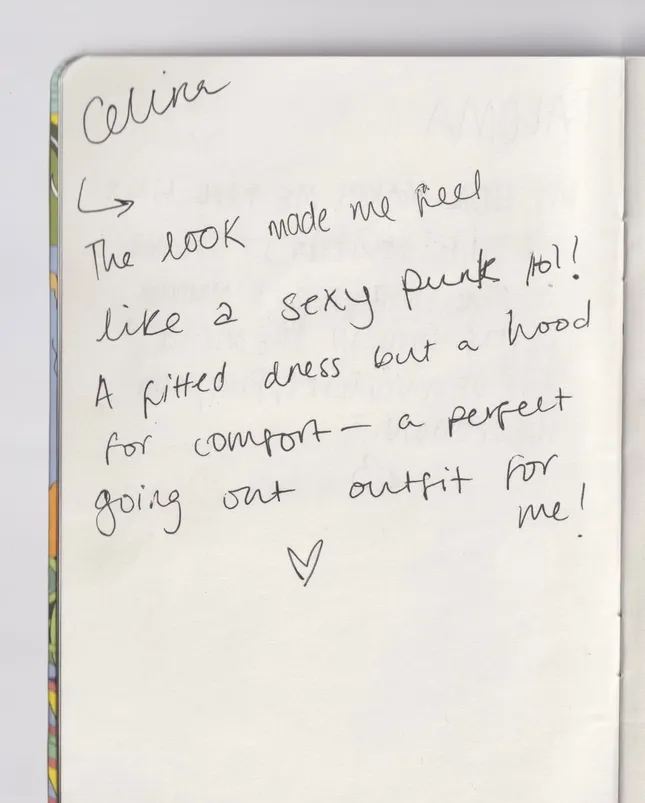 Celina
↳
The look made me feel
like a sexy punk lol!
A fitted dress but a hood
for comfort — a perfect
going out outfit for
me!
♡